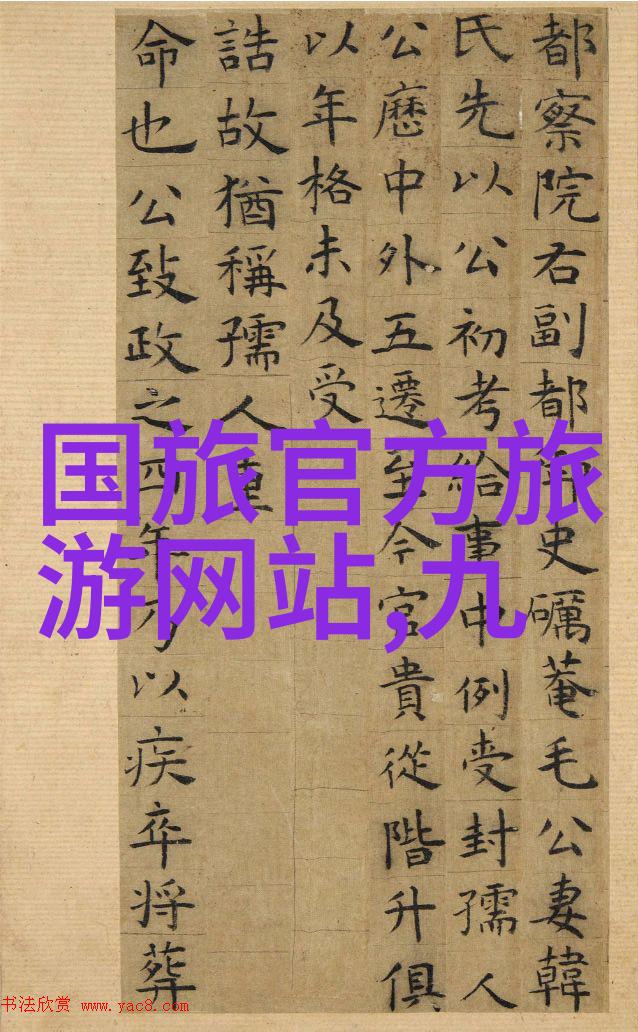 都察院右副都御史礪菴毛公妻韓
氏先以公初考給事中例受封孺人
公歷中外五遷至今官貴從階升俱
以年格未及受
誥故猶稱孺人重
命也公致政之四年乃以疾卒将葬
国旅官方旅
游网站,九
书法欣赏 www.yac8.com